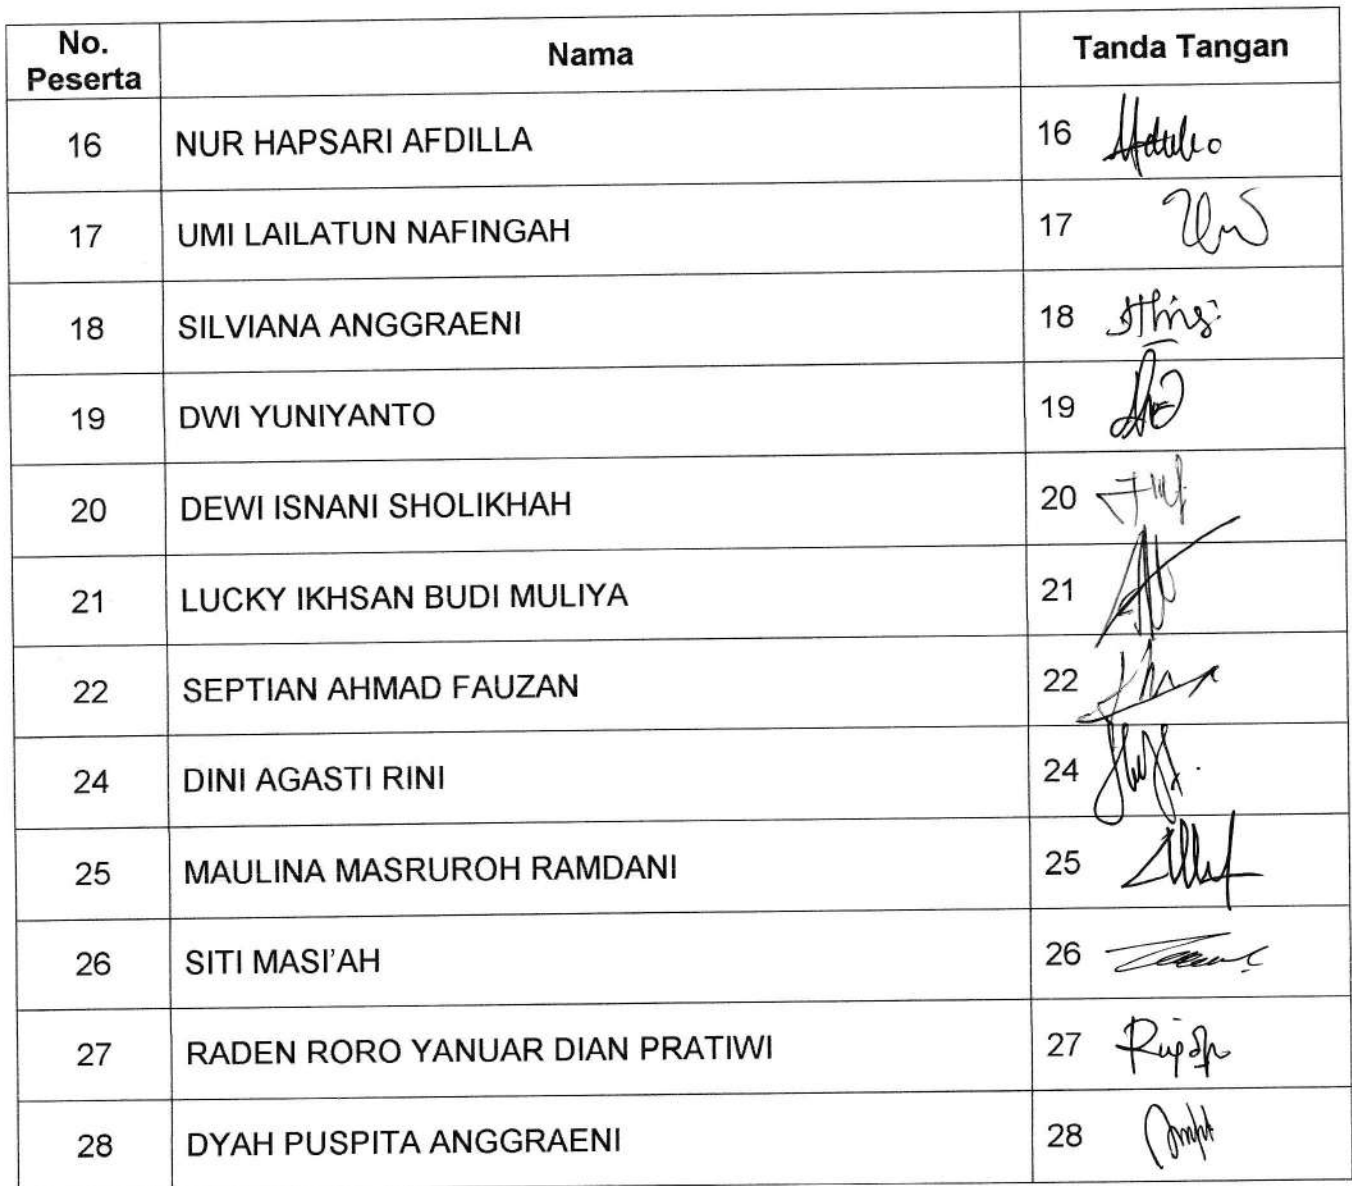 No. Peserta Nama Tanda Tangan
16 NUR HAPSARI AFDILLA 16
17 UMI LAILATUN NAFINGAH 17
18 SILVIANA ANGGRAENI 18
19 DWI YUNIYANTO 19
20 DEWI ISNANI SHOLIKHAH 20
21 LUCKY IKHSAN BUDI MULIYA 21
22 SEPTIAN AHMAD FAUZAN 22
24 DINI AGASTI RINI 24
25 MAULINA MASRUROH RAMDANI 25
26 SITI MASI'AH 26
27 RADEN RORO YANUAR DIAN PRATIWI 27
28 DYAH PUSPITA ANGGRAENI 28